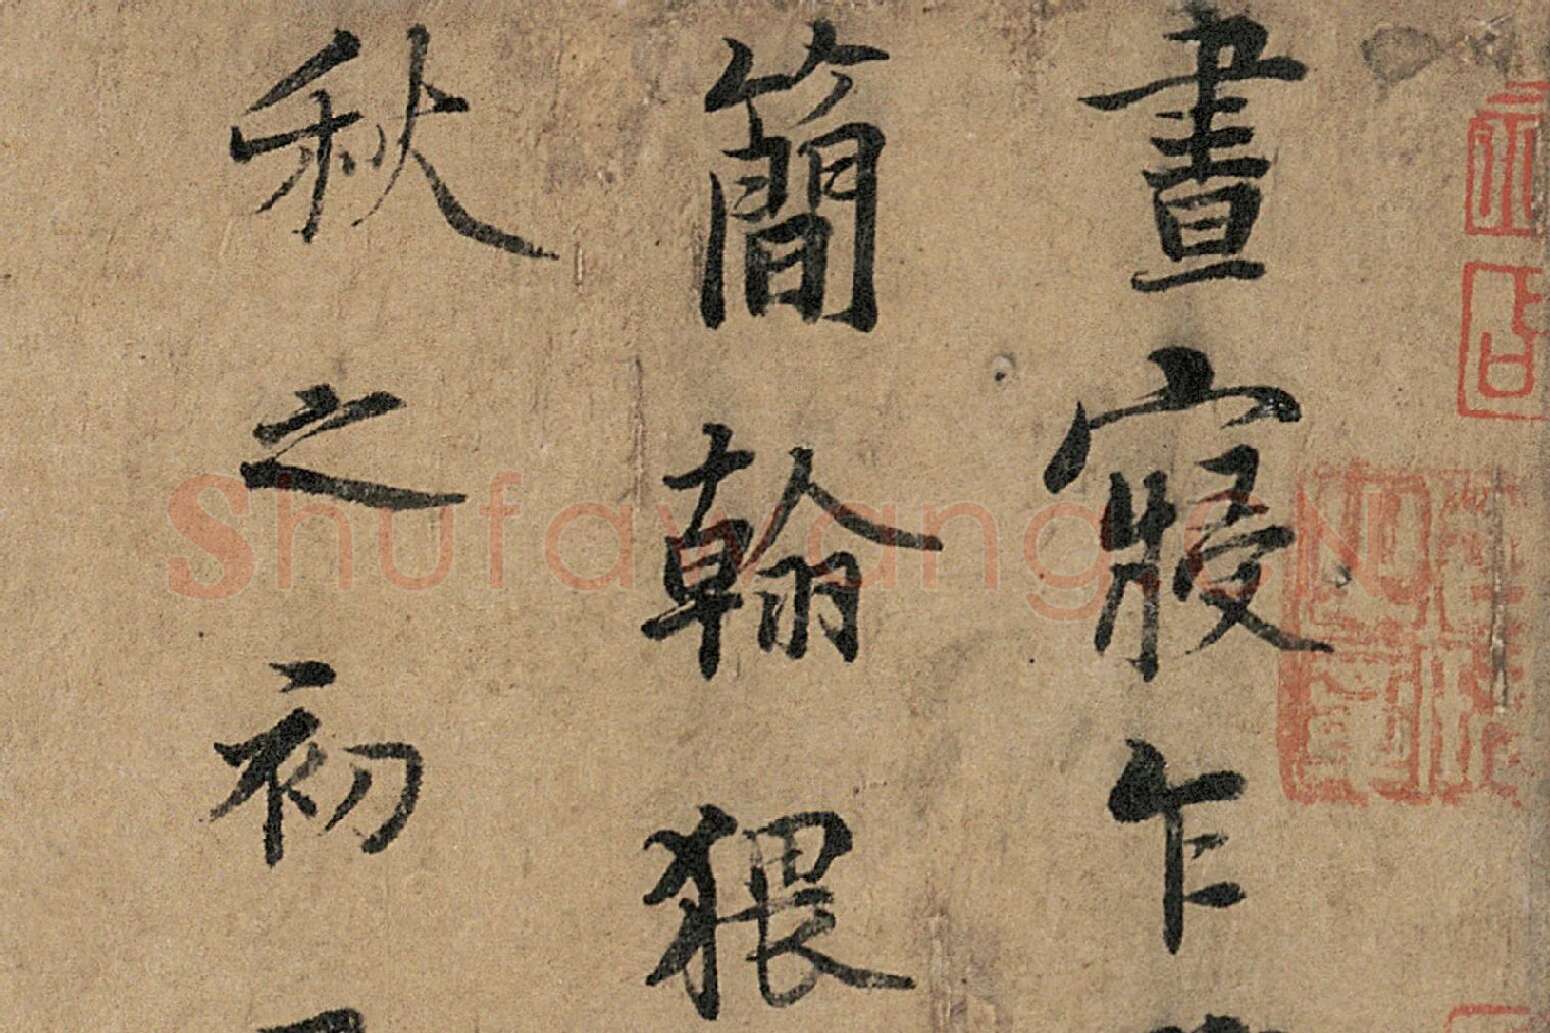 晝寢乍
簡翰猥
秋之初
Shufawang.CN